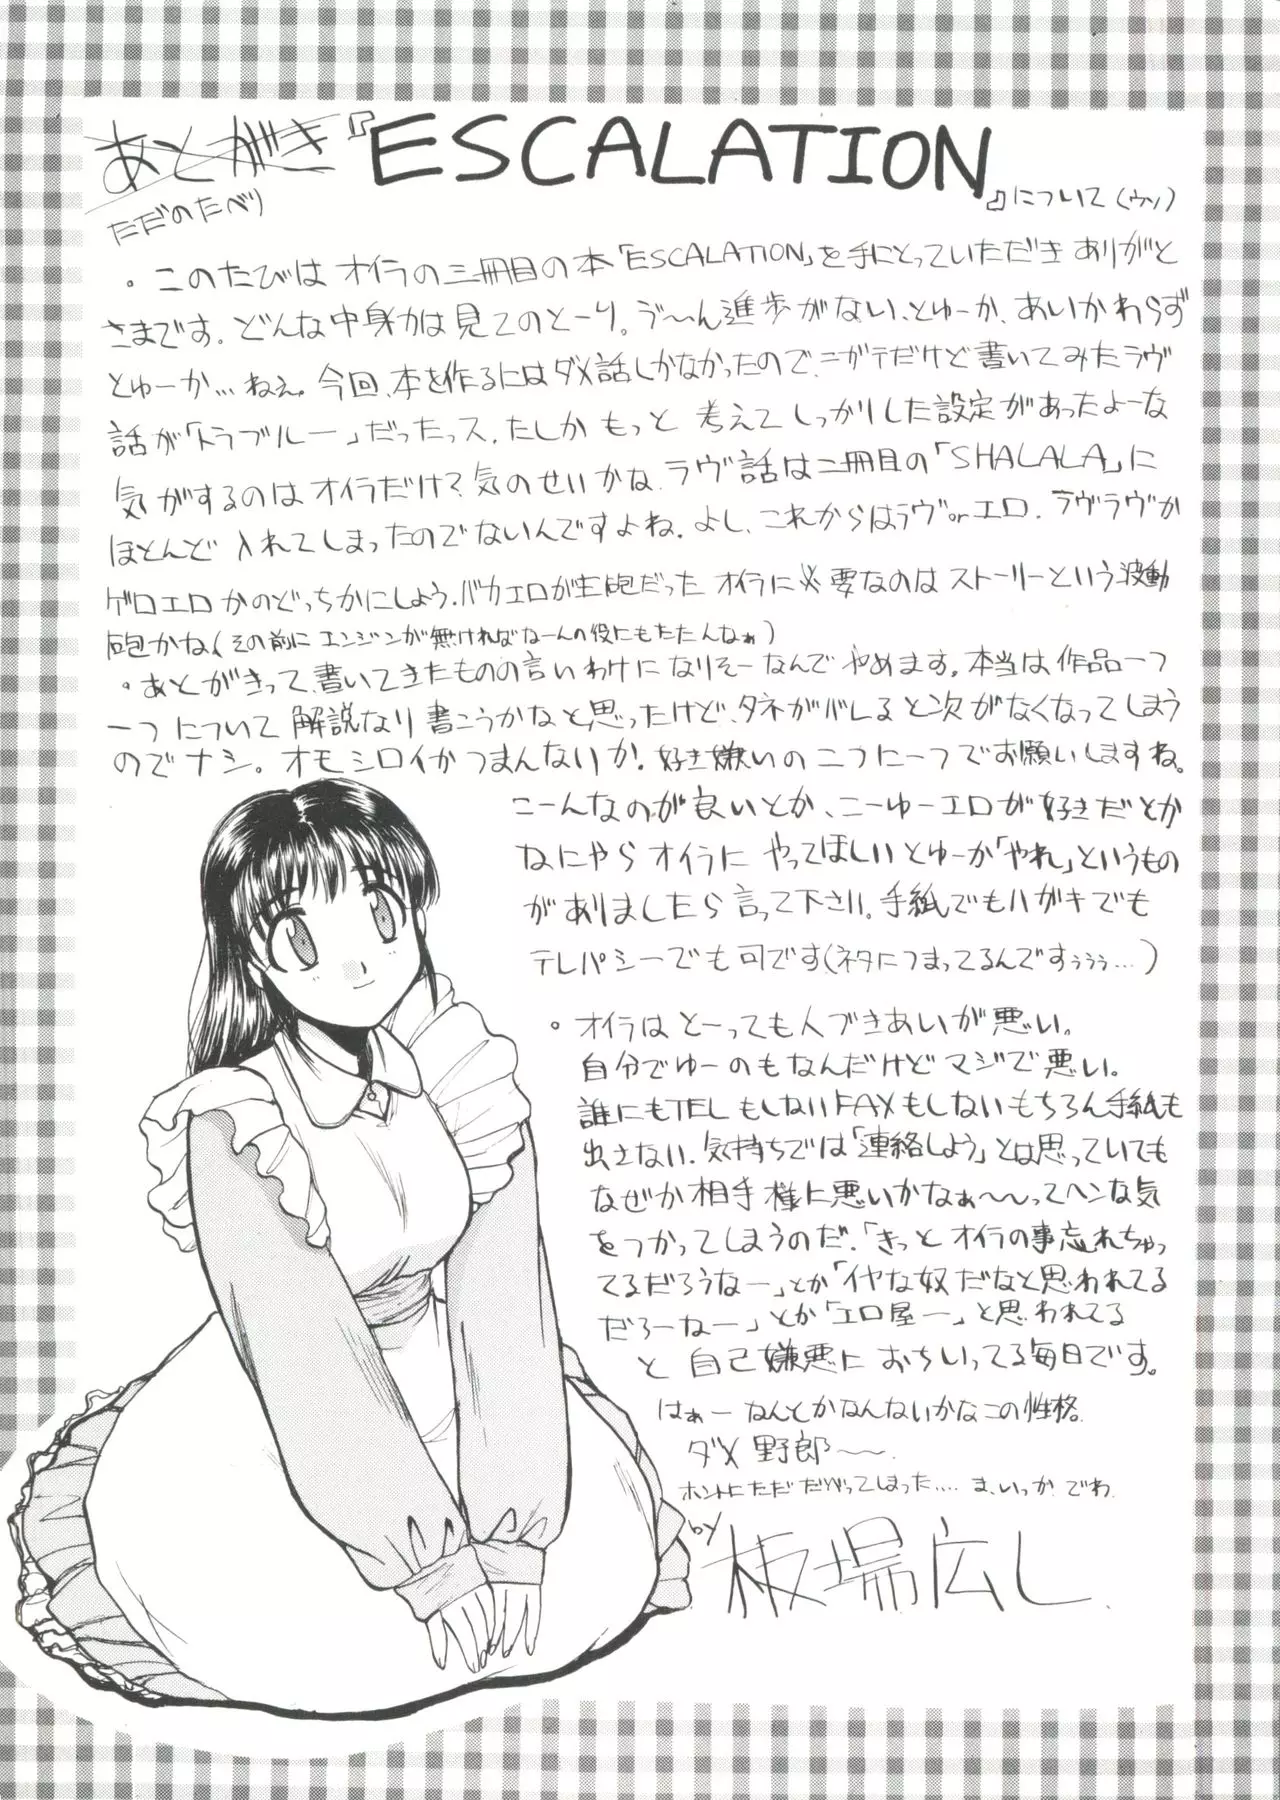 あとがき『ESCALATION』について(ウソ)
ただのだべり
・このたびは オイラの三冊目の本「ESCALATION」を手にとっていただき ありがと
さまです。どんな中身かは見てのとーり。う゛〜ん進歩がない、とゆーか、あいかわらず
とゆーか…ねぇ。今回、本を作るにはダメ話しかなかったので、ニガテだけど書いてみたラヴ
話が「トラブルー」だったっス。たしか もっと 考えてしっかりした設定があったよーな
気がするのはオイラだけ？気のせいかな。ラヴ話は二冊目の「SHALALA」に
ほとんど入れてしまったのでないんですよね。よし、これからはラヴorエロ、ラヴラヴか
ゲロエロかのどっちかにしよう。バカエロが主砲だった オイラに必要なのは ストーリーという波動
砲かな(その前に エンジンが無ければなーんの役にもたたんなぁ)
・あとがきって、書いてきたものの言いわけになりそーなんで やめます。本当は作品一つ
一つについて解説なり書こうかなと思ったけど、タネがバレると次がなくなってしまう
のでナシ。オモシロイかつまんないか！好き嫌いの二つに一つでお願いしますね。
こーんなのが良いとか、こーゆーエロが好きだとか
なにやらオイラに やってほしいとゆーか「やれ」というもの
がありましたら言って下さい。手紙でもハガキでも
テレパシーでも可です(ネタにつまってるんですぅぅぅ…)
・オイラはとーっても人づきあいが悪い。
自分でゆーのもなんだけどマジで悪い。
誰にもTELもしないFAXもしないもちろん手紙も
出さない。気持ちでは「連絡しよう」とは思っていても
なぜか相手様に悪いかなぁ〜〜ってヘンな気
をつかってしまうのだ。「きっとオイラの事忘れちゃっ
てるだろうなー」とか「イヤな奴だなと思われてる
だろーなー」とか「エロ屋ー」と思われてる
と 自己嫌悪に おちいってる毎日です。
はぁー なんとかなんないかなこの性格。
ダメ野郎〜〜。
ホントにただ だべってしまった…。ま、いっか。でわ。
by 板場広し